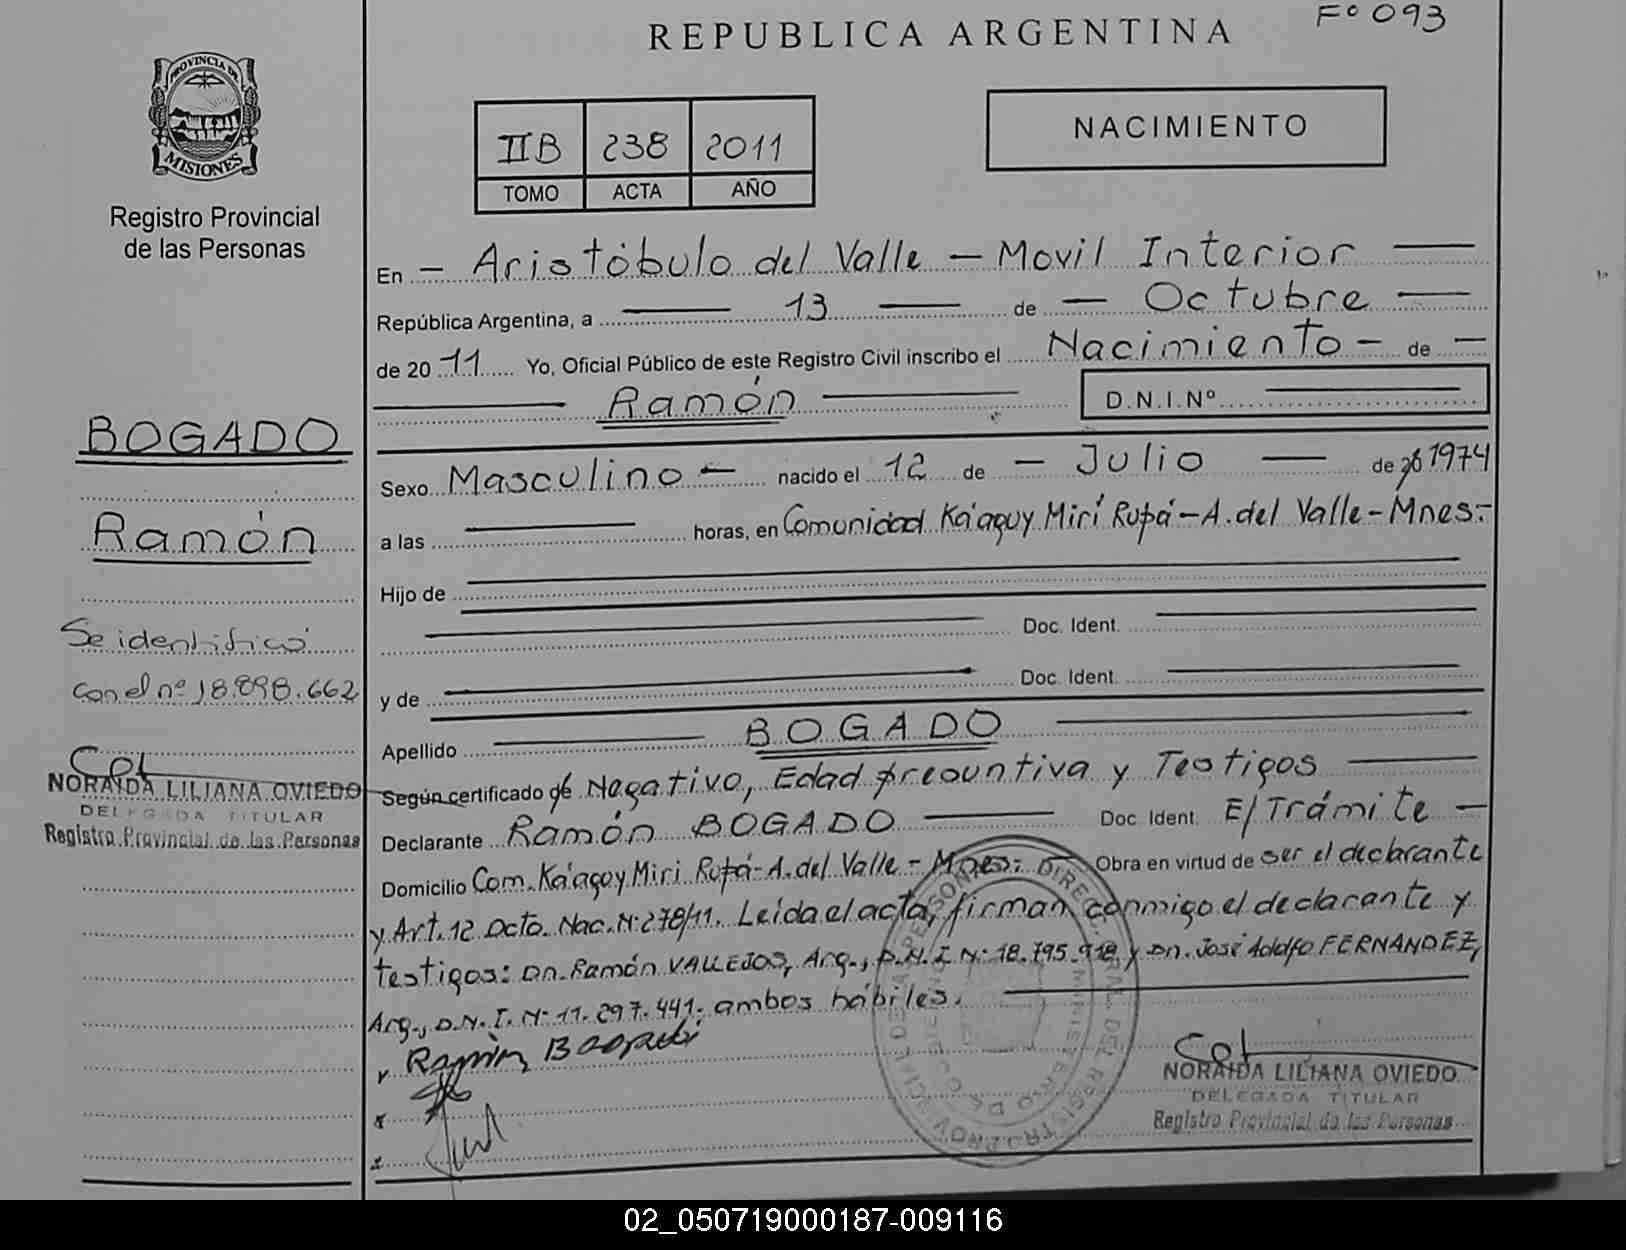 REPUBLICA ARGENTINA
Fº 093
PROVINCIA DE
MISIONES
Registro Provincial
de las Personas
IIB 238 2011
TOMO ACTA AÑO
NACIMIENTO
En – Aristóbulo del Valle – Movil Interior —
República Argentina, a — 13 — de — Octubre —
de 2011 Yo, Oficial Público de este Registro Civil inscribo el Nacimiento – de –
— Ramón — D.N.I.Nº —
BOGADO
Ramón
Se identificó
con el nº 18.898.662
NORAIDA LILIANA OVIEDO
DELEGADA TITULAR
Registro Provincial de las Personas
Sexo Masculino – nacido el 12 de – Julio — de 1974
a las — horas, en Comunidad Ka'aguy Mirí Rupá – A. del Valle – Mnes.-
Hijo de —
— Doc. Ident. —
y de — Doc. Ident. —
Apellido — BOGADO —
Según certificado de Negativo, Edad presuntiva y Testigos —
Declarante Ramón BOGADO — Doc. Ident. E/Trámite –
Domicilio Com. Ka'aguy Miri Rupá - A. del Valle - Mnes.- Obra en virtud de ser el declarante
y Art. 12 Dcto. Nac. Nº 278/11. Leída el acta, firman conmigo el declarante y
testigos: Dn. Ramón VALLEJOS, Arg., D.N.I. Nº 18.795.918 y Dn. José Adolfo FERNANDEZ,
Arg., D.N.I. Nº 11.297.441. ambos hábiles. —
x Ramón Bogado
x
x
NORAIDA LILIANA OVIEDO
DELEGADA TITULAR
Registro Provincial de las Personas
02_050719000187-009116